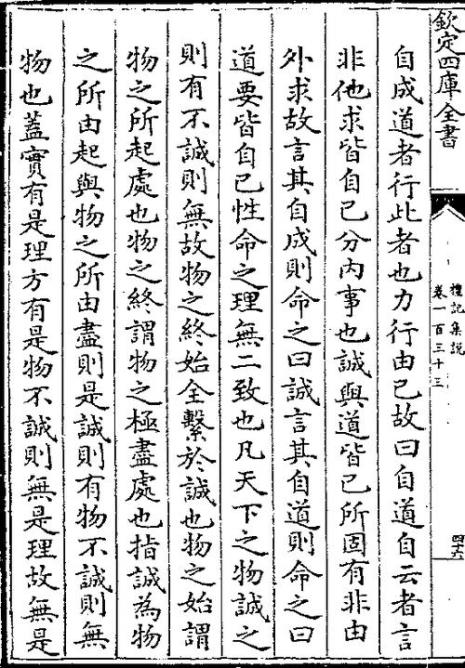 欽定四庫全書
禮記集說
卷一百三十三
四十六
自成道者行此者也力行由已故曰自道自云者言
非他求皆自已分内事也誠與道皆已所固有非由
外求故言其自成則命之曰誠言其自道則命之曰
道要皆自已性命之理無二致也凡天下之物誠之
則有不誠則無故物之終始全繫於誠也物之始謂
物之所起處也物之終謂物之極盡處也指誠為物
之所由起與物之所由盡則是誠則有物不誠則無
物也蓋實有是理方有是物不誠則無是理故無是